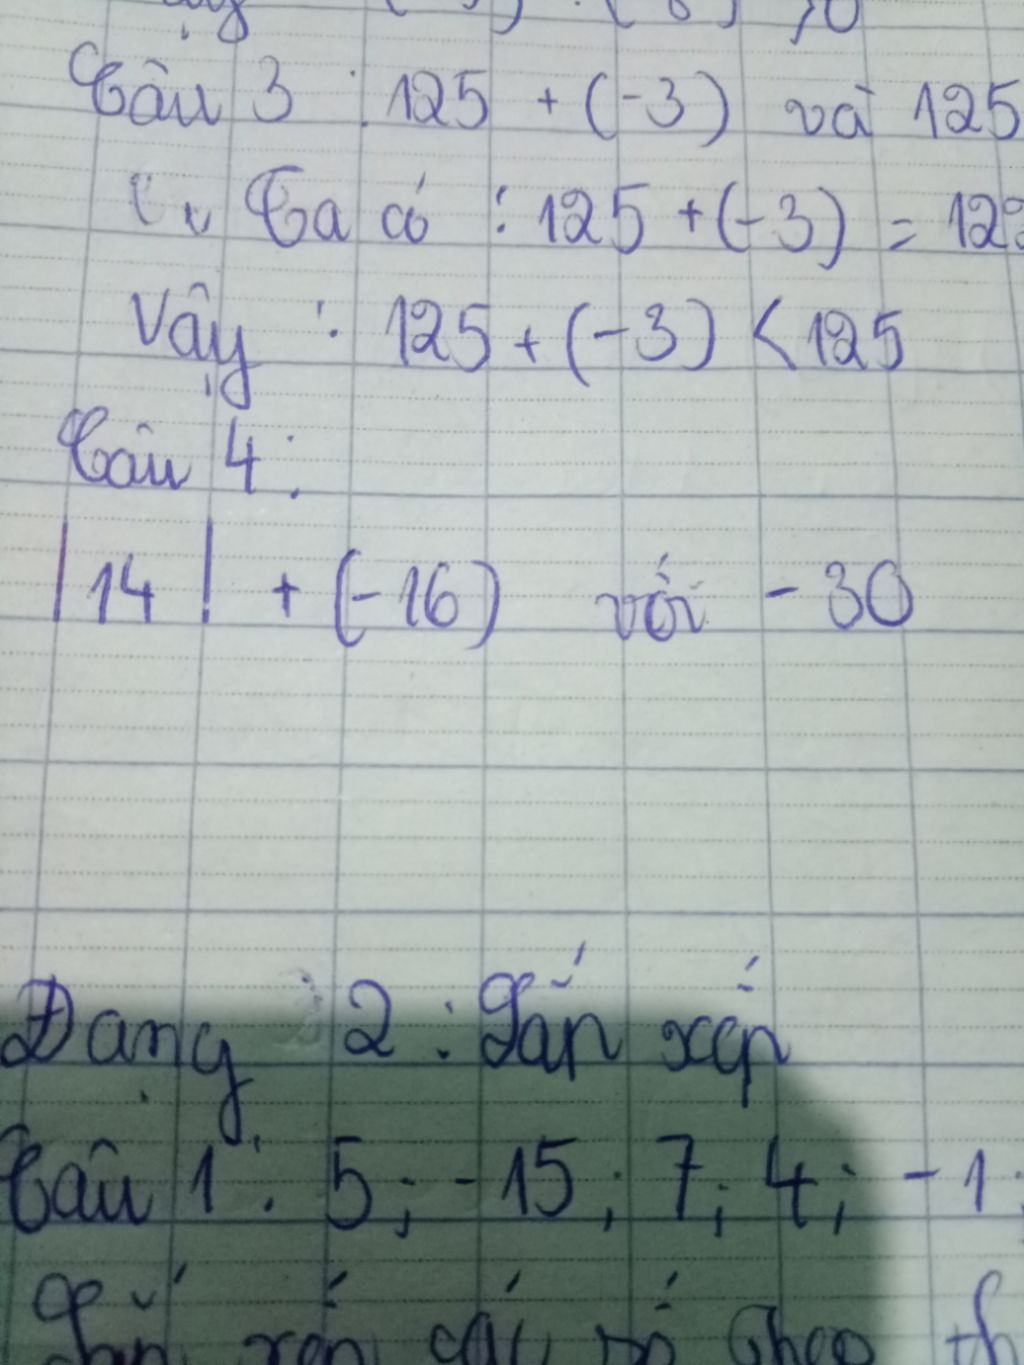 Câu 3 : 125 + (-3) và 125
Ta có : 125 + (-3) = 122
Vậy : 125 + (-3) < 125
Câu 4 :
|14| + (-16) với - 30
Dạng 2 : Sắp xếp
Câu 1 : 5 ; -15 ; 7 ; 4 ; -1 ;
Sắp xếp các số theo